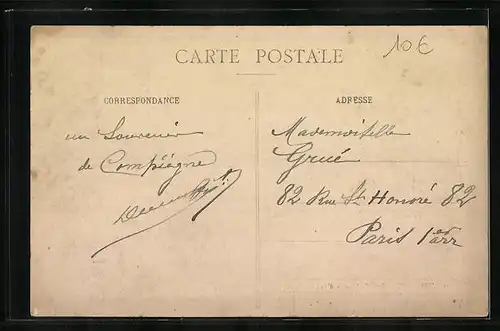 10€
CARTE POSTALE
CORRESPONDANCE
un Souvenir
de Compiègne
ADRESSE
Mademoiselle
Grué
82 Rue St Honoré 82
Paris 1er arr